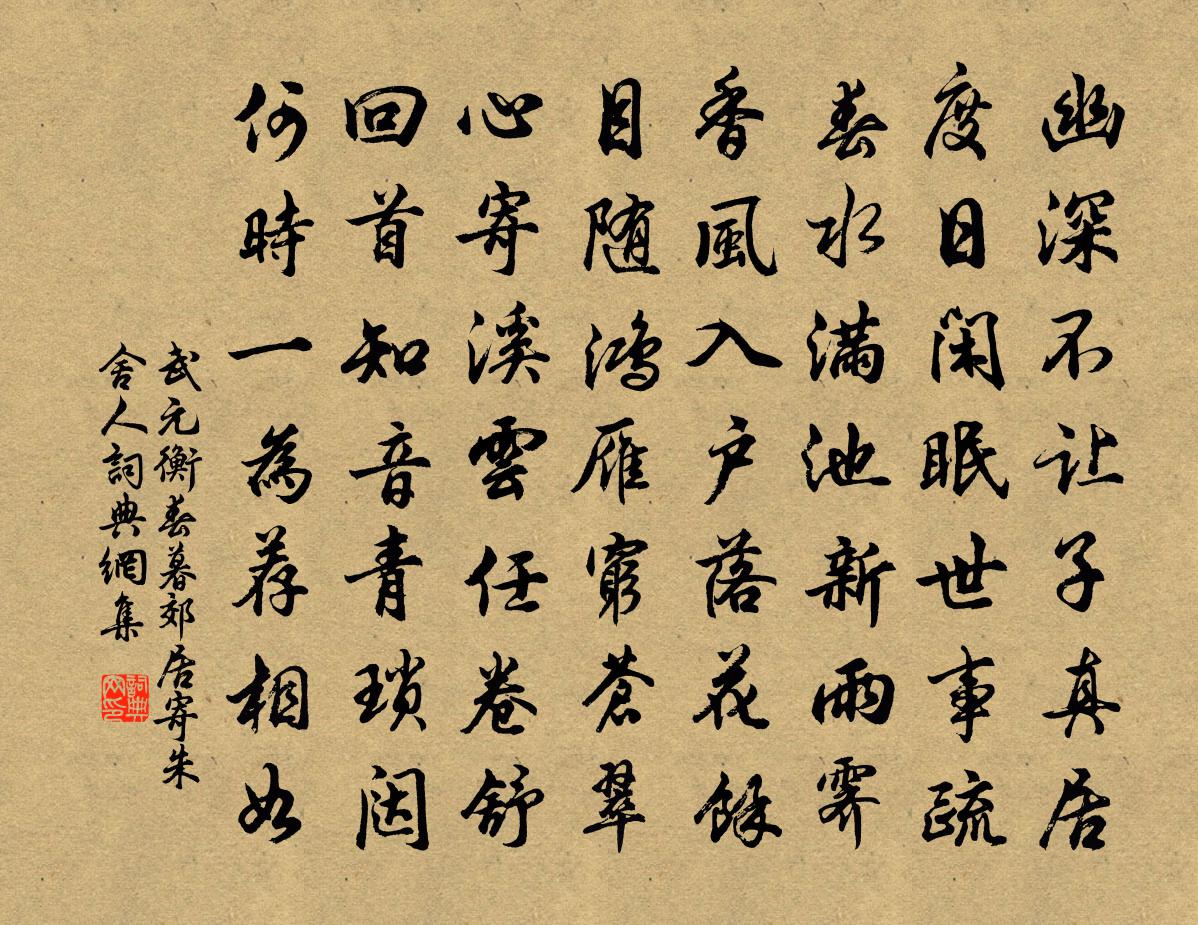 幽深不让子真居
度日闲眠世事疏
春水满池新雨霽
香風入户落花餘
目随鴻雁窮蒼翠
心寄溪雲任卷舒
回首知音青瑣闼
何時一為荐相如
武元衡春暮郊居寄朱
舍人詞典網集
詞典
网印